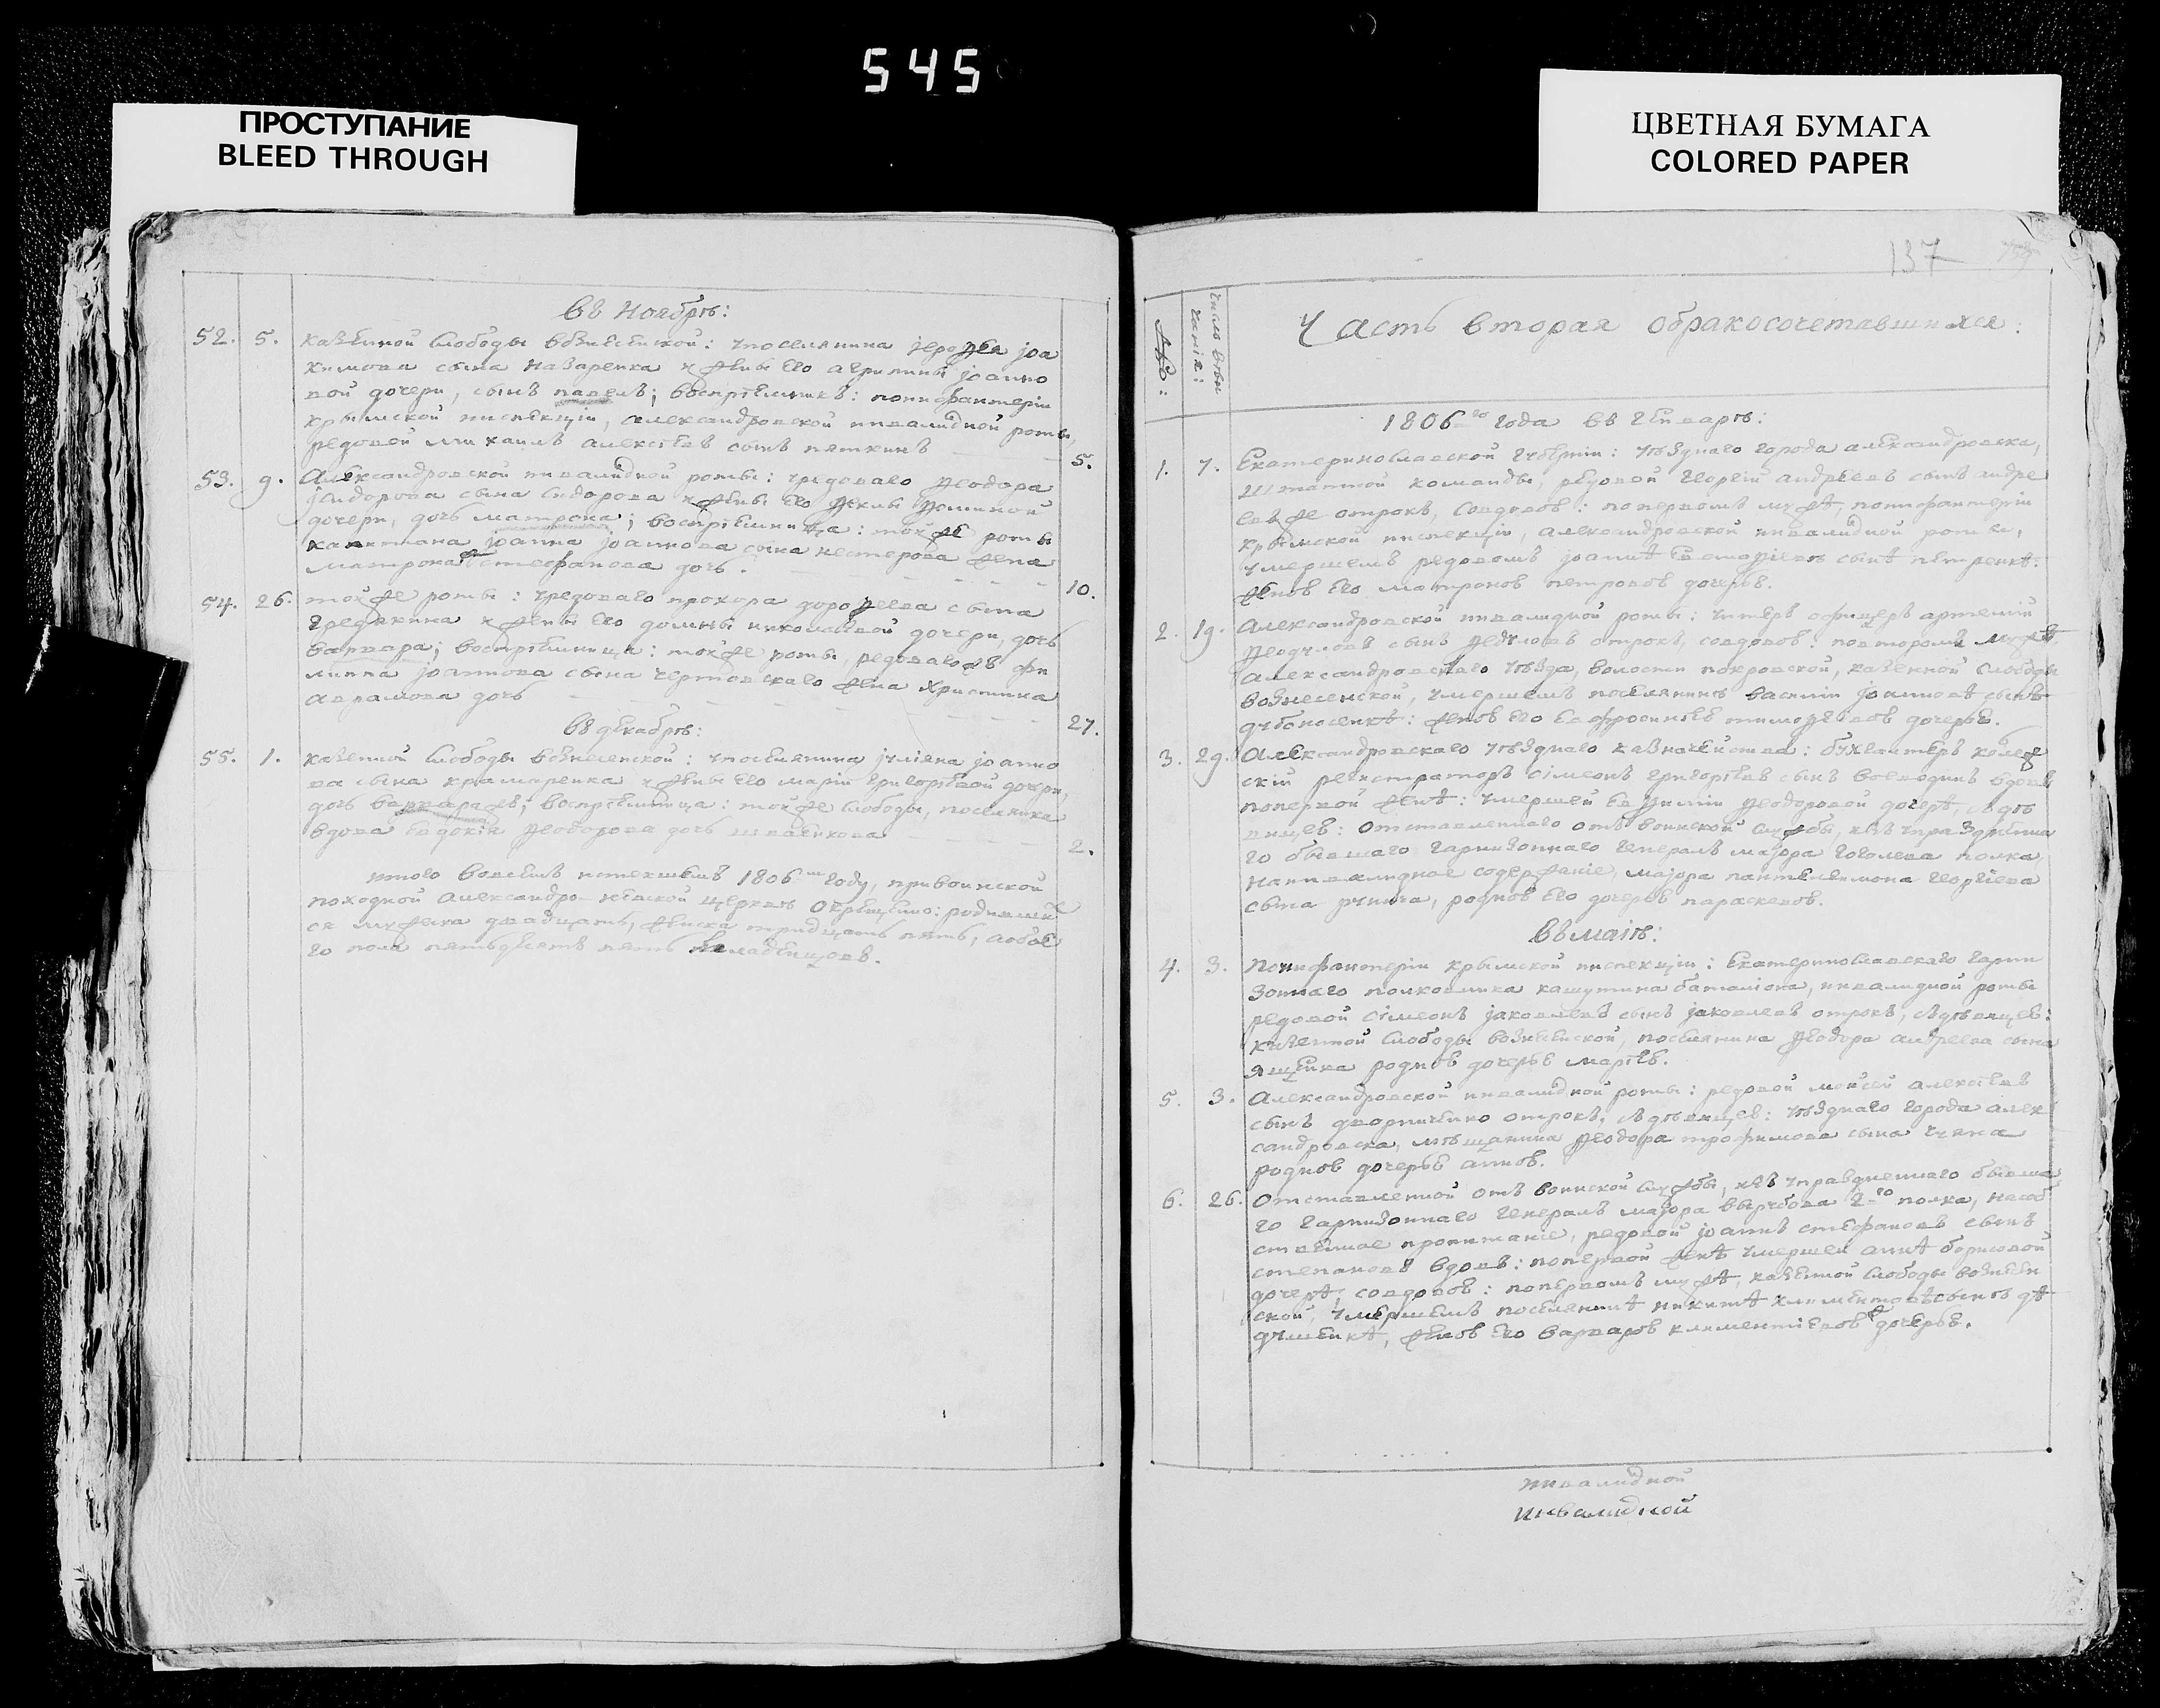 545
ПРОСТУПАНИЕ
BLEED THROUGH
ЦВЕТНАЯ БУМАГА
COLORED PAPER
въ Ноябрѣ:
52. 5. казенной слободы вознесенской: упоселянина іероѳея іоа
кимова сына назаренка ужены его агрипины іоанно
вой дочери, сынъ павелъ; воспріемникъ: поинфантеріи
крымской инспекціи, александровской инвалидной роты,
редовой михаилъ алексѣевъ сынъ пяткинъ 5.
53. 9. Александровской инвалидной роты: уредоваго ѳеодора
сидорова сына сидорова ужены его ѳеклы ѳоминой
дочери, дочь матрона; воспріемница: тойже роты
капитана іоанна іоаннова сына нестерова жена
матрона стефанова дочь. 10.
54. 26. тойже роты: уредоваго прохора дороѳеева сына
гредякина ужены его домны николаевой дочери, дочь
варвара; воспріемница: тойже роты, редоваго жъ фи
липпа іоаннова сына чертовскаго жена христина
аврамова дочь 27.
въ декабрѣ:
55. 1. казенной слободы вознесенской: упоселянина іуліяна іоанно
ва сына крамаренка ужены его маріи григоріевой дочери,
дочь варвара жъ; воспріемница: тойже слободы, поселянка
вдова евдокія ѳеодорова дочь швабикова 2.
итого вовсемъ истекшемъ 1806 году, привоинской
походной александро-невской церквѣ окрещено: родивших
ся мужеска двадцать, женска тридцать пять, аобое
го пола пятьдесятъ пять младенцовъ.
137
Часть вторая обракосочетавшихся:
1806го года въ Генварѣ:
1. 7. Екатеринославской губерніи: уѣзднаго города александровска,
штатной команды, редовой георгій андреевъ сынъ андре
евъ же отрокъ, совдовою: попервомъ мужѣ, поинфантеріи
крымской инспекціи, александровской инвалидной роты,
умершемъ редовомъ іоаннѣ сынѣ петренкѣ:
женою его матроною петровою дочерью.
2. 19. Александровской инвалидной роты: унтеръ офицеръ артемій
ѳедуловъ сынъ ѳедуловъ отрокъ, совдовою: повторомъ мужѣ
александровскаго уѣзда, волости покровской, казенной слободы
вознесенской, умершемъ поселянинѣ василіи іоанновѣ сынѣ
дубоносенкѣ: женою его евфросиніею тимоѳѣевою дочерью.
3. 29. Александровскаго уѣзднаго казначейства: бухгалтеръ колеж
скій регистраторъ сімеонъ григоріевъ сынъ воеводинъ вдовъ
попервой женѣ: умершей евѳиміи ѳеодоровой дочерѣ, сѣдѣ
вицею: отставленнаго отъ воинской службы, изъ упраздненна
го бывшаго гарнизоннаго генералъ маіора гоголева полка,
наинвалидное содержаніе, маіора пантелеимона георгіева
сына рунича, родною его дочерью параскевою.
въ маіѣ:
4. 3. Поинфантеріи крымской инспекціи: екатеринославскаго гарни
зоннаго полковника кашутина баталіона, инвалидной роты
редовой сімеонъ іаковлевъ сынъ іаковлевъ отрокъ, сѣдѣвицею:
казенной слободы вознесенской, поселянина ѳеодора андреева сына
ященка родною дочерью маріею.
5. 3. Александровской инвалидной роты: редовой моисей алексѣевъ
сынъ дворниченко отрокъ, сѣдѣвицею: уѣзднаго города алек
сандровска, мѣщанина ѳеодора трофимова сына
родною дочерью анною.
6. 26. Отставленной отъ воинской службы, изъ упраздненнаго бывша
го гарнизоннаго генералъ маіора вырубова 2го полка, насоб
ственное пропитаніе, редовой іоаннъ стефановъ сынъ
степановъ вдовъ: попервой женѣ умершей аннѣ борисовой
дочерѣ, совдовою: попервомъ мужѣ, казенной слободы вознесен
ской, умершемъ поселянинѣ никитѣ климентовѣ сынѣ дѣ
душенкѣ, женою его варварою климентіевою дочерью.
инвалидной
инвалидной